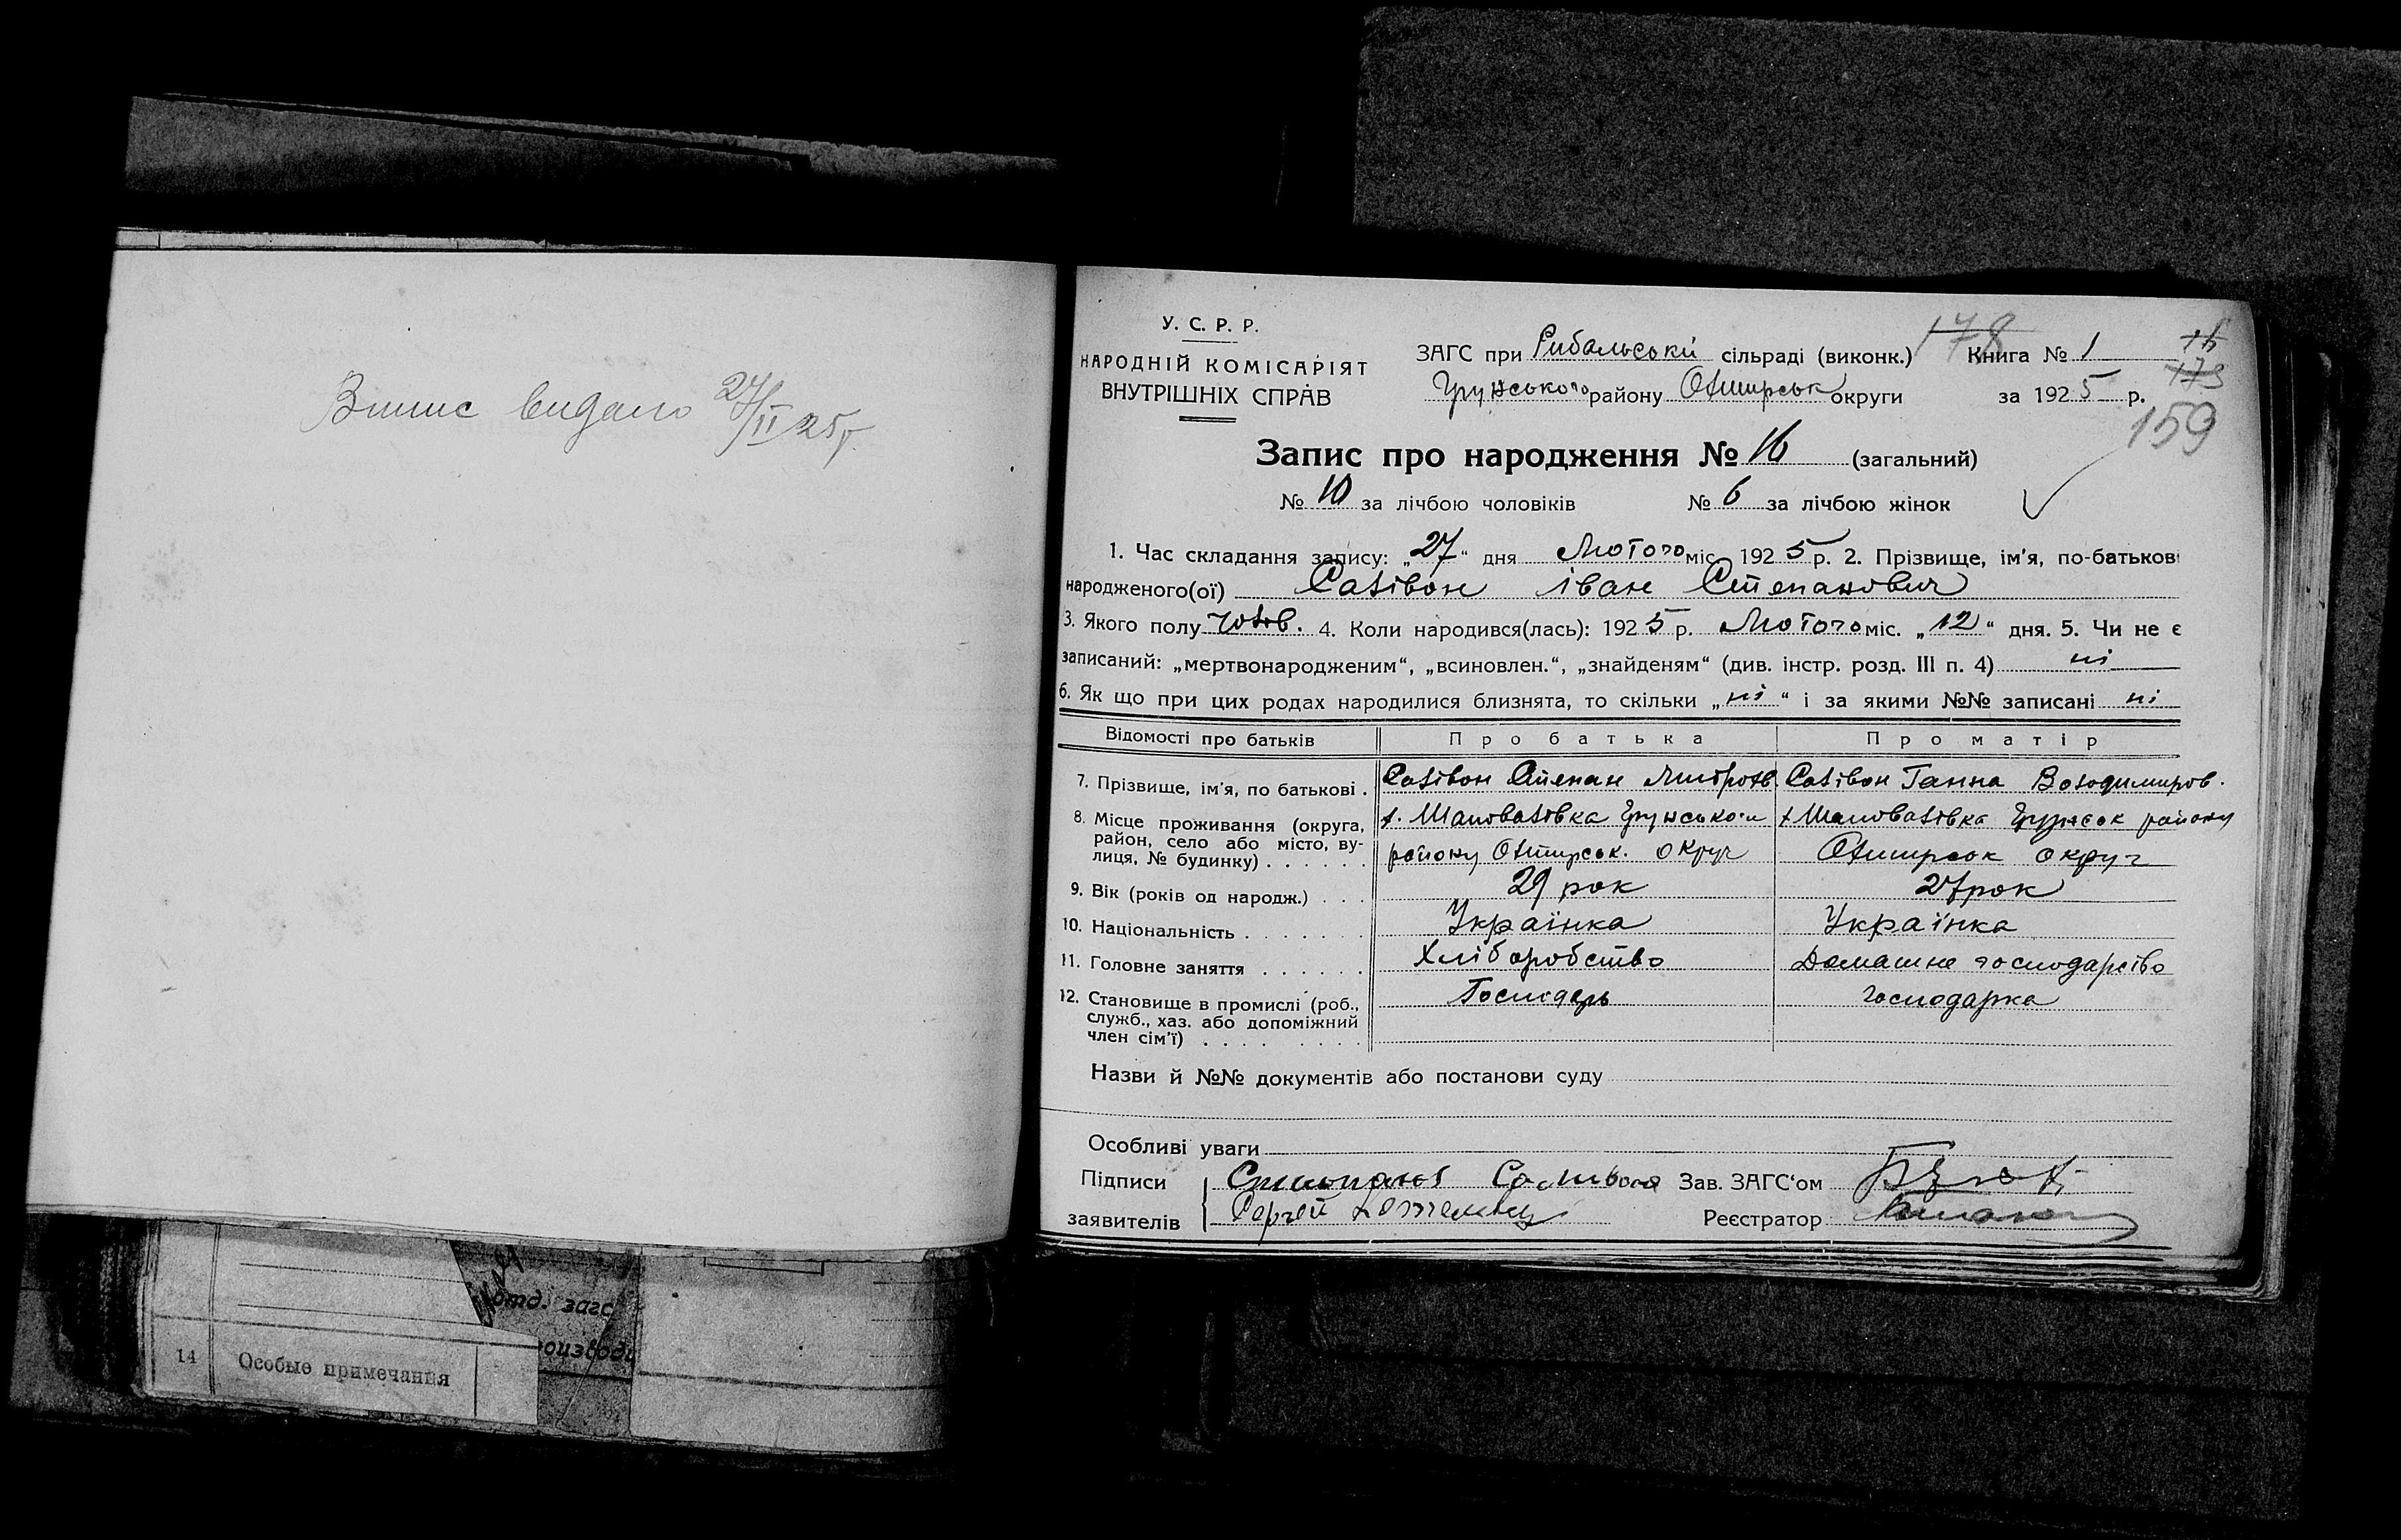 Випис видано 27/II 25 р.
У. С. Р. Р.
НАРОДНІЙ КОМІСАРІЯТ
ВНУТРІШНІХ СПРАВ
ЗАГС при Рибальські сільраді (виконк.) 178 Книга № 1
Грунського району Охтирськ округи за 1925 р.
173
159
Запис про народження № 16 (загальний)
№ 10 за лічбою чоловіків № 6 за лічбою жінок
1. Час складання запису: „27“ дня Лютого міс. 1925 р. 2. Прізвище, ім'я, по-батькові
народженого(ої) Салівон Іван Степанович
3. Якого полу чолов. 4. Коли народився(лась): 1925 р. Лютого міс. „12“ дня. 5. Чи не є
записаний: „мертвонародженим“, „всиновлен.“, „знайденям“ (див. інстр. розд. III п. 4) ні
6. Як що при цих родах народилися близнята, то скільки „ні“ і за якими №№ записані ні
Відомості про батьків Про батька Про матір
7. Прізвище, ім'я, по батькові . Салівон Степан Митроф. Салівон Ганна Володимиров.
8. Місце проживання (округа, район, село або місто, вулиця, № будинку) . . . . . .
х. Шаповалівка Грунського
району Охтирськ. округ
х Шаповалівка Грунськ району
Охтирськ округ
9. Вік (років од народж.) . . . 29 рок 27 рок
10. Національність . . . . . . . Українка Українка
11. Головне заняття . . . . . . Хліборобство Домашнє господарство
12. Становище в промислі (роб., служб., хаз. або допоміжний член сім'ї) . . . . . . . . Господарь господарка
Назви й №№ документів або постанови суду
Особливі уваги
Підписи Зав. ЗАГС'ом
заявителів Сергей Реєстратор
отд. загс
14 Особые примечания